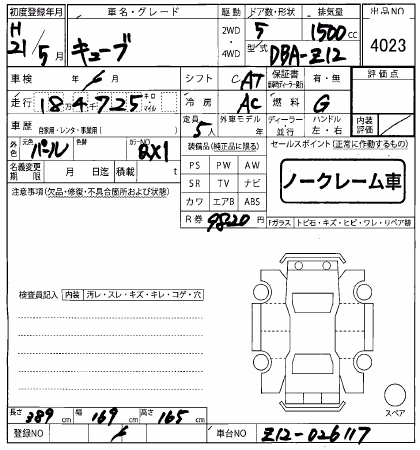 初度登録年月 車名・グレード 駆動 ドア数・形状 排気量 出品NO
H 21/5月 キューブ 2WD・4WD 5 1500cc 4023
型式 DBA-Z12
車検 シフト C AT 保証書 有・無 評価点
走行 184725 キロ・マイル 冷房 AC 燃料 G
車歴 自家用・レンタ・事業用( ) 定員 5人 外車モデル 年 ディーラー・並行 ハンドル 左・右 内装評価
外色 元色 パール 色替 カラーNO QX1 装備品(純正品に限る) セールスポイント(正常に作動するもの)
名義変更期限 月 日迄 積載 t PS PW AW
注意事項(欠品・修復・不具合箇所および状態) SR TV ナビ
カワ エアB ABS
R券 9820円
ノークレーム車
Fガラス トビ石・キズ・ヒビ・ワレ・リペア跡
検査員記入 内装 汚レ・スレ・キズ・キレ・コゲ・穴
スペア
長さ 389cm 幅 169cm 高さ 165cm
登録NO 車台NO Z12-026117